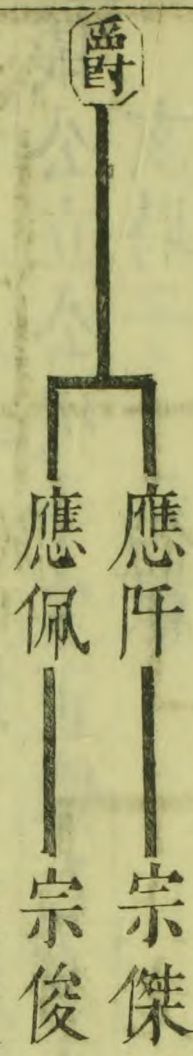 爵
應阡
宗傑
應佩
宗俊